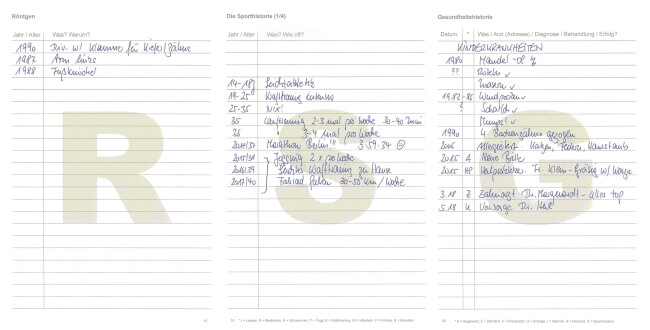 Röntgen
Jahr / Alter Was? Warum?
1990 Div. w/ Klammer für Kiefer/Zähne
1987 Arm links
1988 Fußknöchel
Die Sporthistorie (1/4)
Jahr / Alter Was? Wie oft?
14-18J Leichtathletik
19-25 Krafttraining intensiv
25-35 Nix!
35 Lauftraining 2-3 mal pro Woche 30-40 min
36 3-4 mal pro Woche
2014/37 Marathon Berlin!!! 3:59:34
2015/38 Jogging 2 x pro Woche
2016/39 Leichtes Krafttraining zu Hause
2017/40 Fahrrad fahren 30-50 km/Woche
Gesundheitshistorie
Datum * Was / Arzt (Adresse) / Diagnose / Behandlung / Erfolg?
KINDERKRANKHEITEN
Mandel-OP
?? Röteln ✓
Masern ✓
1982-86 Windpocken ✓
? Scharlach ✓
Mumps! ✓
1990 4 Backenzähne gezogen
2006 Allergietest: Katzen, Federn, Hausstaub
2015 A Neue Brille
2015 HP Heilpraktikerin: Fr. Klein- w/ Warze
3.18 Z Zahnarzt Dr. - alles top
5.18 Vorsorge Dr.